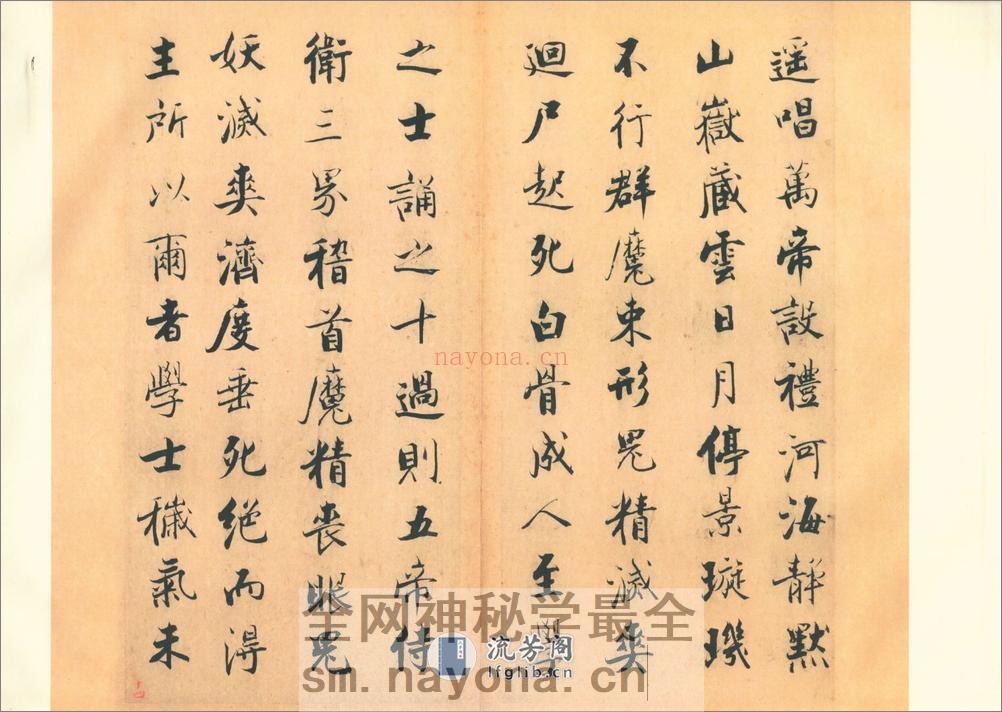 遥唱萬帝設禮河海静默
山嶽藏雲日月停景璇璣
不行群魔束形鬼精滅爽
廻尸起死白骨成人至學
之士誦之十過則五帝侍
衛三界稽首魔精喪眼鬼
妖滅爽濟度垂死絕而得
主所以爾者學士穢氣未
十四
nayona.cn
全网神秘学最全
流芳阁
lfglib.cn
sm.nayona.cn